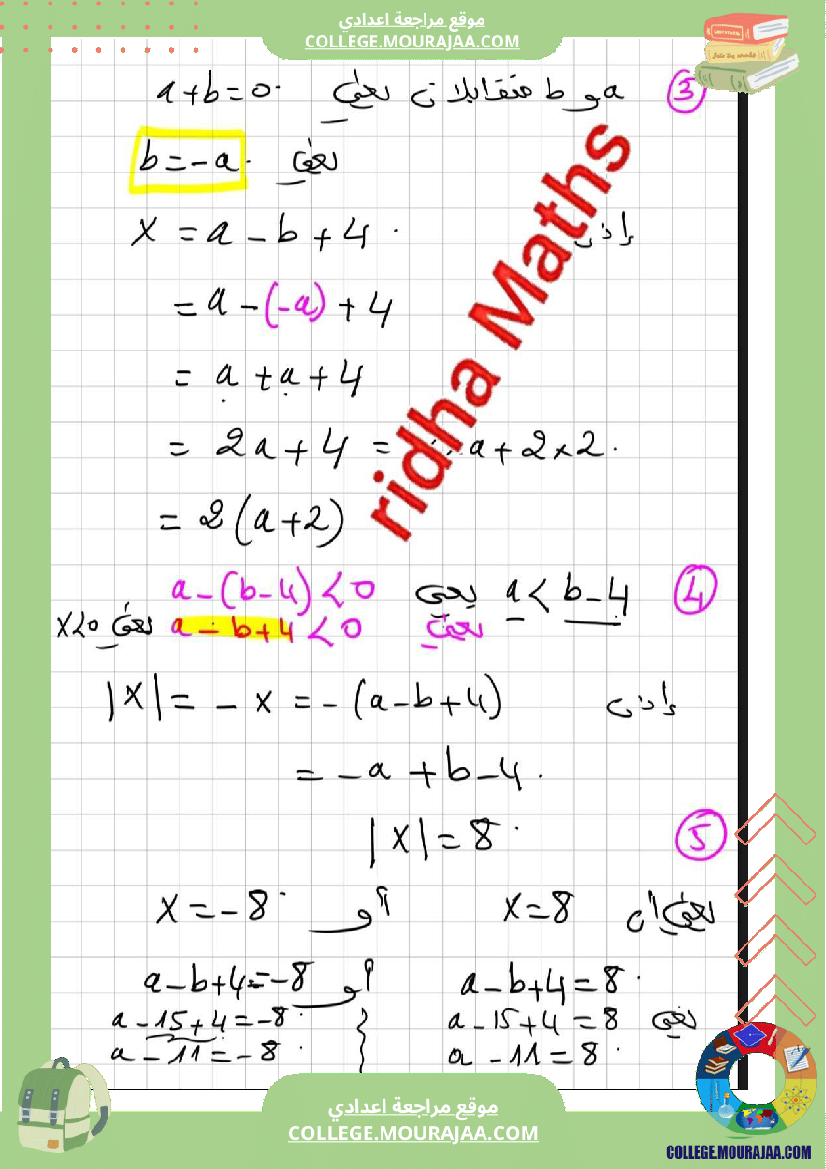 موقع مراجعة اعدادي
COLLEGE.MOURAJAA.COM
③ a و b متقابلان يعني a+b=0
يعني b=-a
إذن X = a - b + 4
= a - (-a) + 4
= a + a + 4
= 2a + 4 = a + 2×2
= 2(a+2)
④ a < b-4 يعني a-(b-4)<0
يعني a-b+4<0 يعني X<0
إذن |X| = -X = -(a-b+4)
= -a + b - 4
⑤ |X| = 8
يعني أن X=8 أو X=-8
a-b+4=8 أو a-b+4=-8
يعني a-15+4=8 a-15+4=-8
a-11=8 a-11=-8
ridha Maths
موقع مراجعة اعدادي
COLLEGE.MOURAJAA.COM
COLLEGE.MOURAJAA.COM